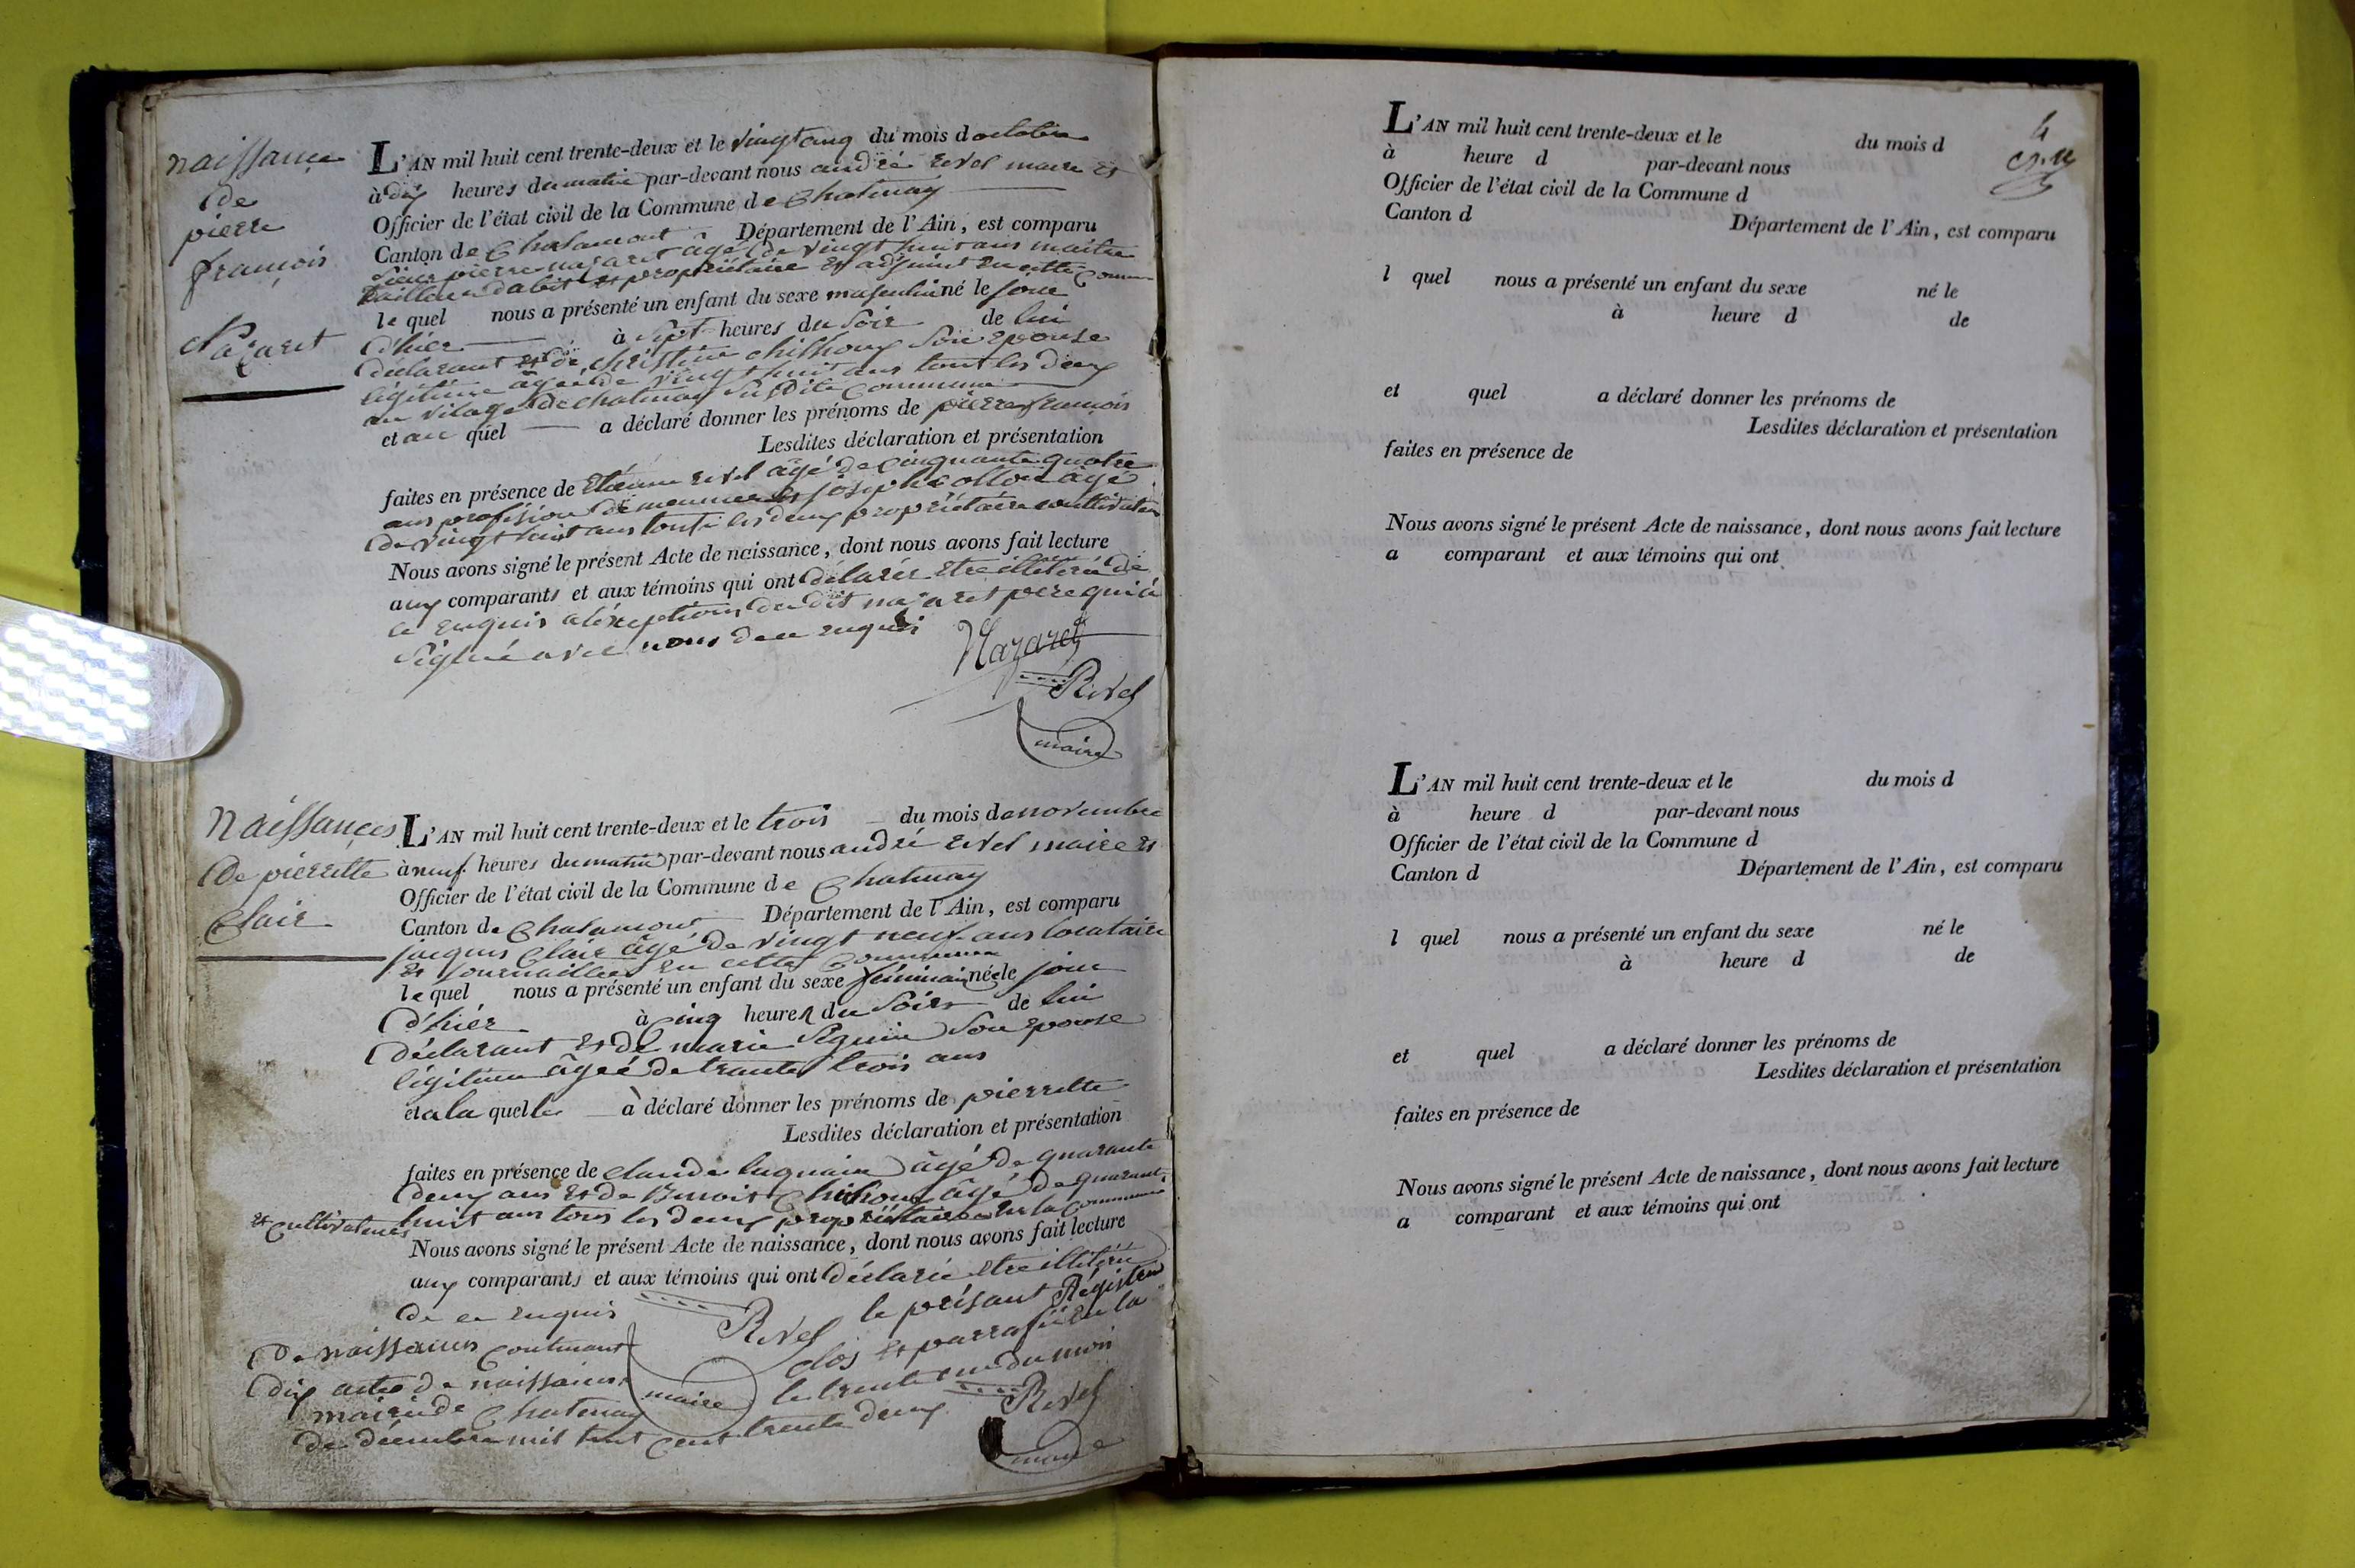 naissance
de
pierre
françois
Nazaret
L'AN mil huit cent trente-deux et le vingt cinq du mois d octobre
à dix heures du matin par-devant nous andré revel maire et
Officier de l'état civil de la Commune de Chatenay
Canton de Chalamont Département de l'Ain, est comparu
sieur pierre nazaret âgé de vingt huit ans maitre
tailleur d'abit et propriétaire et adjoint en cette Commune
le quel nous a présenté un enfant du sexe masculin né le jour
d'hier à sept heures du soir de lui
déclarant et de christine son epouse
légitime âgée de vingt huit ans tout les deux
au vilage de chatenay susdite Commune
et au quel a déclaré donner les prénoms de pierre françois
Lesdites déclaration et présentation
faites en présence de Etienne revel âgé de cinquante quatre
ans profession de meunier et joseph âgé
de vingt huit ans tout les deux propriétaire cultivateur
Nous avons signé le présent Acte de naissance, dont nous avons fait lecture
aux comparants et aux témoins qui ont déclarés etre illitéré de
ce enquis a l'éxeption du dit nazaret père qui à
signé avec nous de ce enquis
Nazaret
Revel
maire
naissances
De pierrette
Clair
L'AN mil huit cent trente-deux et le trois du mois de novembre
à neuf heures du matin par-devant nous andré revel maire et
Officier de l'état civil de la Commune de Chatenay
Canton de Chalamont Département de l'Ain, est comparu
jacques Clair âgé de vingt neuf ans locataire
et journaillier en cette Commune
le quel nous a présenté un enfant du sexe féminain née le jour
d'hiér à Cinq heures du soir de lui
déclarant et de marie Seguin son epouse
légitime âgeé de trante trois ans
et a la quelle a déclaré donner les prénoms de pierrette
Lesdites déclaration et présentation
faites en présence de claude âgé de quarante
deux ans et de Benoit âgé de quarante
huit ans tous les deux propriétaire en la Commune
et Cultivateurs
Nous avons signé le présent Acte de naissance, dont nous avons fait lecture
aux comparants et aux témoins qui ont déclarée etre illitéré
de ce enquis
Revel
maire
le présant Régistre
de naissances Contenant
dix actes de naissances
clos et parrafé en la
mairie de Chatenay le trente un du mois
de décembre mil huit cent trente deux
Revel
maire
4
L'AN mil huit cent trente-deux et le du mois d
à heure d par-devant nous
Officier de l'état civil de la Commune d
Canton d Département de l'Ain, est comparu
l quel nous a présenté un enfant du sexe né le
à heure d de
et quel a déclaré donner les prénoms de
Lesdites déclaration et présentation
faites en présence de
Nous avons signé le présent Acte de naissance, dont nous avons fait lecture
a comparant et aux témoins qui ont
L'AN mil huit cent trente-deux et le du mois d
à heure d par-devant nous
Officier de l'état civil de la Commune d
Canton d Département de l'Ain, est comparu
l quel nous a présenté un enfant du sexe né le
à heure d de
et quel a déclaré donner les prénoms de
Lesdites déclaration et présentation
faites en présence de
Nous avons signé le présent Acte de naissance, dont nous avons fait lecture
a comparant et aux témoins qui ont